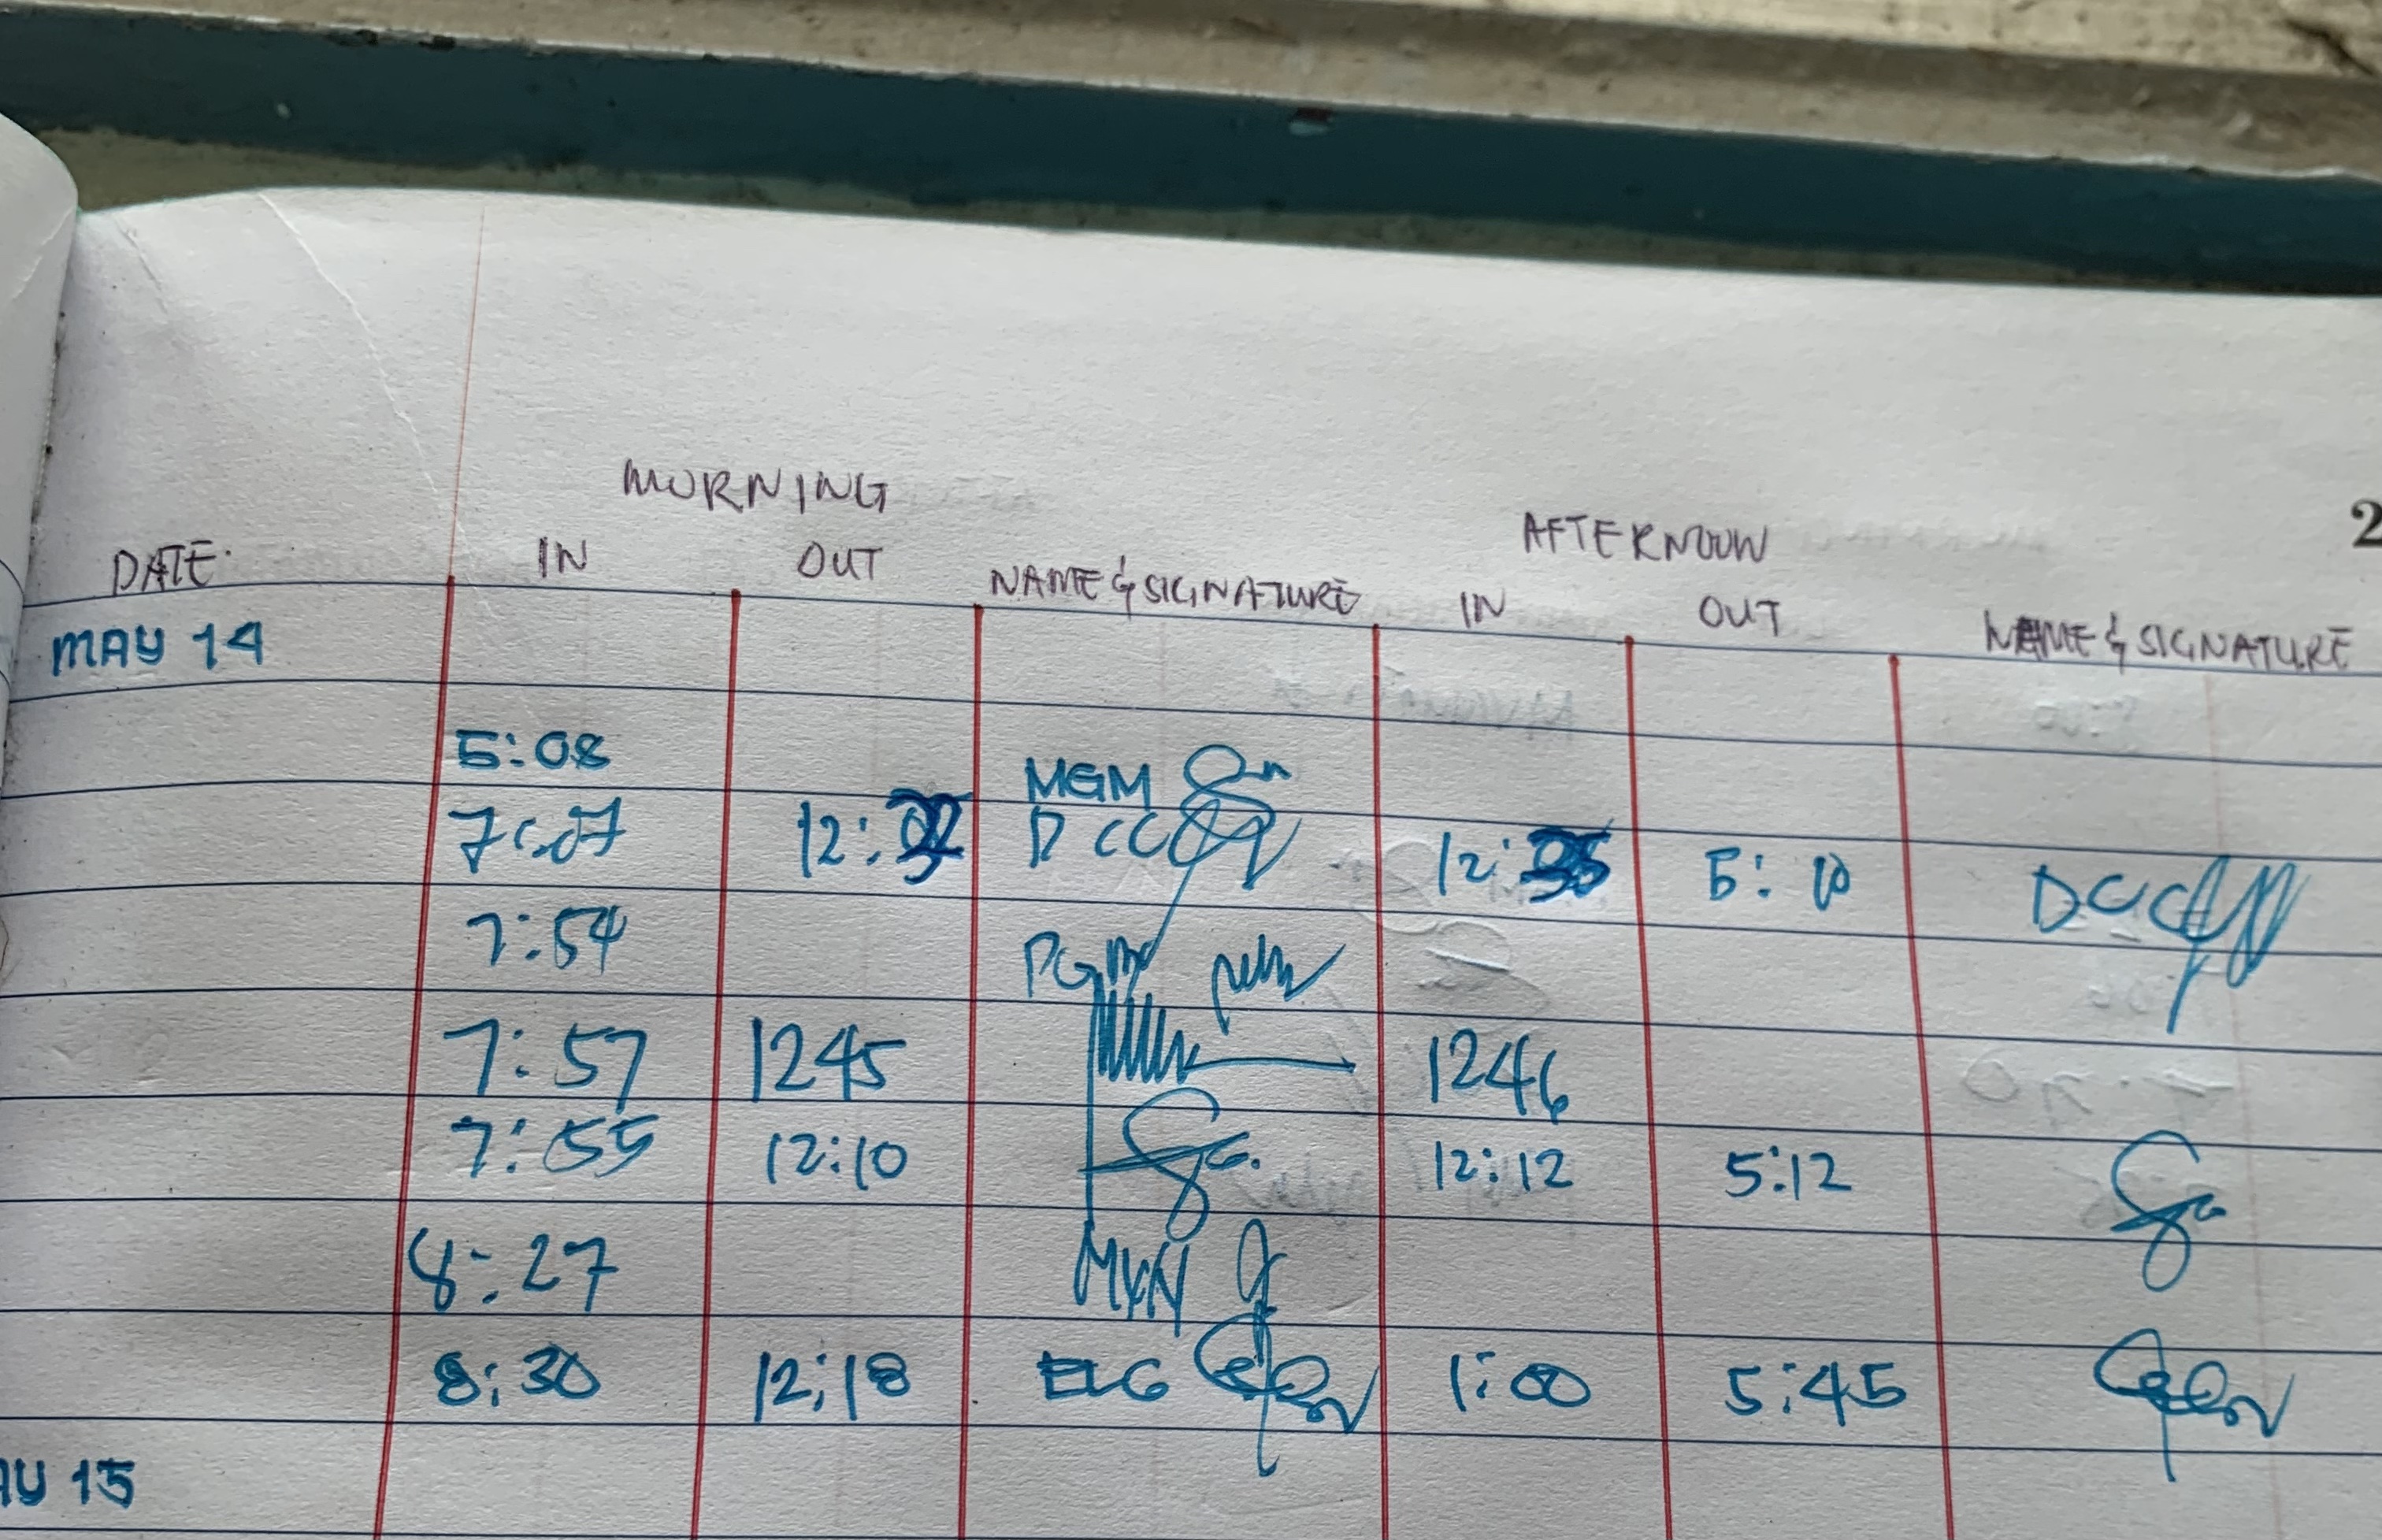 2
MORNING
AFTERNOON
DATE. IN OUT NAME & SIGNATURE IN OUT NAME & SIGNATURE
MAY 14
5:08 MGM
7:07 12: DCC 12: 5:10 DCC
7:54 PGM
7:57 1245 1246
7:55 12:10 12:12 5:12
8:27 MKN
8:30 12:18 ELG 1:00 5:45
15